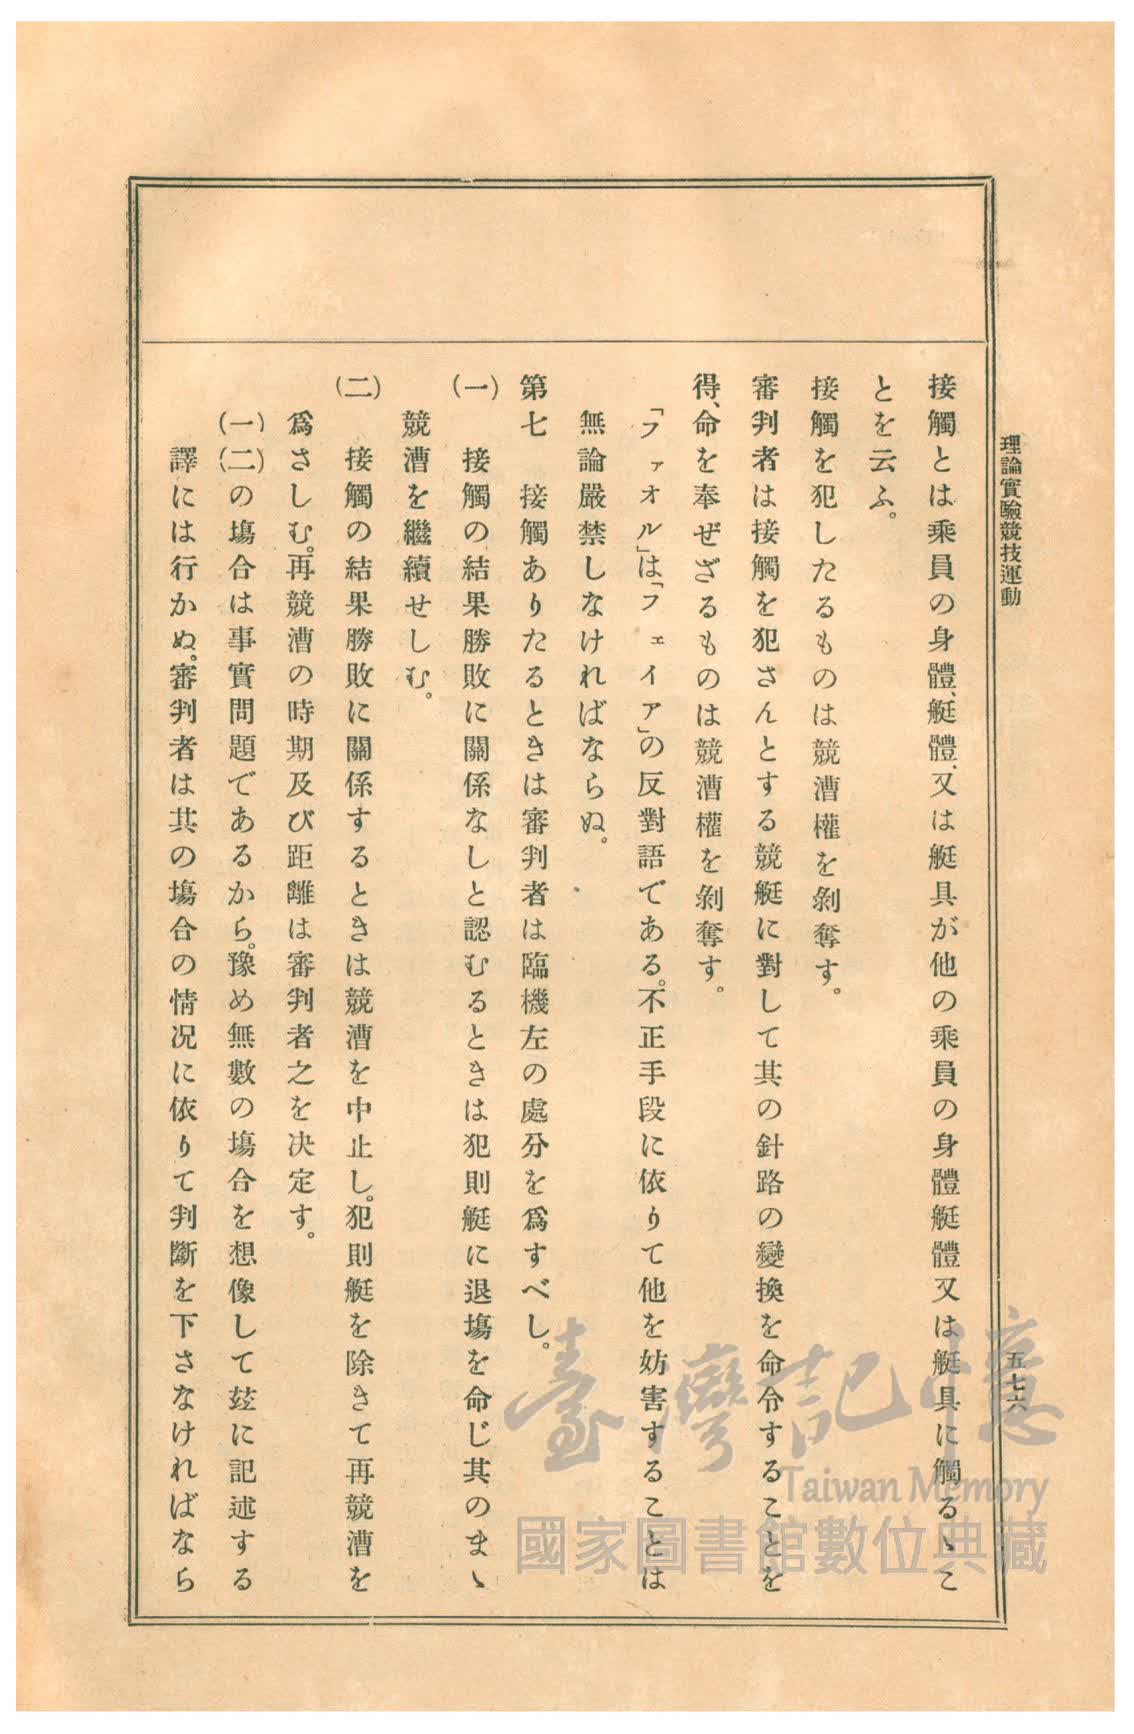 理論實驗競技運動
五七六
接觸とは乘員の身體、艇體、又は艇具が他の乘員の身體艇體又は艇具に觸るゝこ
とを云ふ。
接觸を犯したるものは競漕權を剝奪す。
審判者は接觸を犯さんとする競艇に對して其の針路の變換を命令することを
得、命を奉ぜざるものは競漕權を剝奪す。
「ファオル」は「フェイア」の反對語である。不正手段に依りて他を妨害することは
無論嚴禁しなければならぬ。
第七　接觸ありたるときは審判者は臨機左の處分を爲すべし。
(一)　接觸の結果勝敗に關係なしと認むるときは犯則艇に退塲を命じ其のまゝ
競漕を繼續せしむ。
(二)　接觸の結果勝敗に關係するときは競漕を中止し。犯則艇を除きて再競漕を
爲さしむ。再競漕の時期及び距離は審判者之を决定す。
(一)(二)の塲合は事實問題であるから。豫め無數の塲合を想像して玆に記述する
譯には行かぬ。審判者は其の塲合の情况に依りて判斷を下さなければなら
臺灣記憶
Taiwan Memory
國家圖書館數位典藏